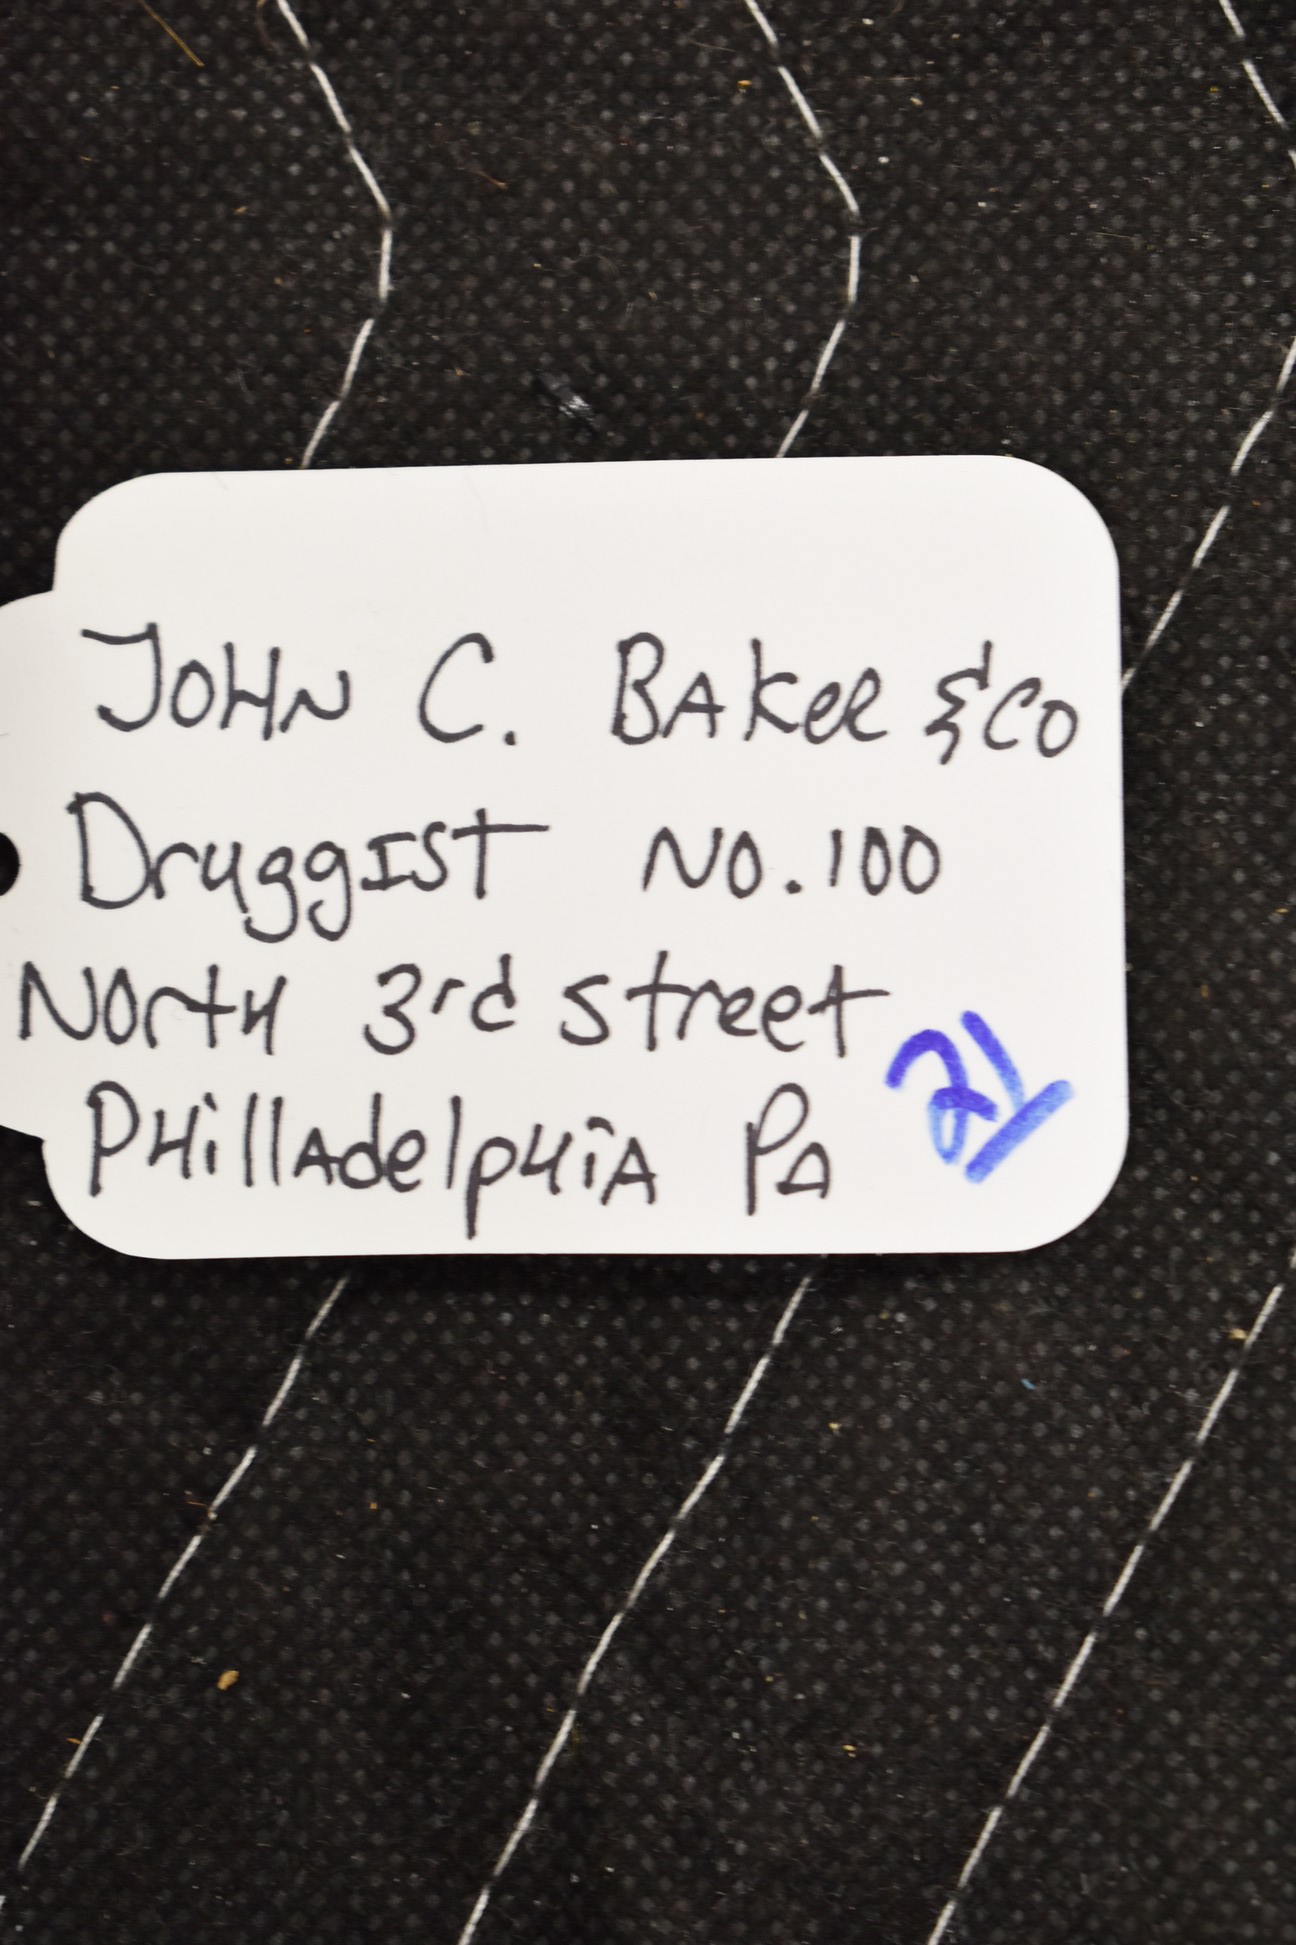 JOHN C. BAKer & CO
DruggIST NO. 100
NOrtH 3rd street
PHillAdelpHiA PA
21